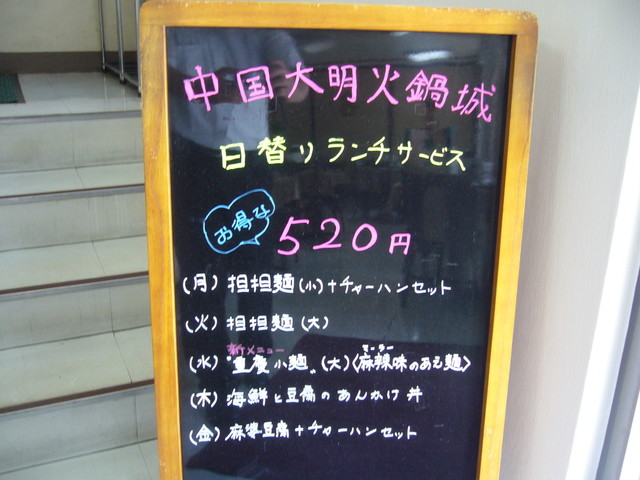 中国大明火鍋城
日替りランチサービス
お得な
520円
(月) 担担麺(小)+チャーハンセット
(火) 担担麺(大)
新メニュー マーラー
(水) "重慶小麺"(大)〈麻辣味のあえ麺〉
(木) 海鮮と豆腐のあんかけ丼
(金) 麻婆豆腐+チャーハンセット